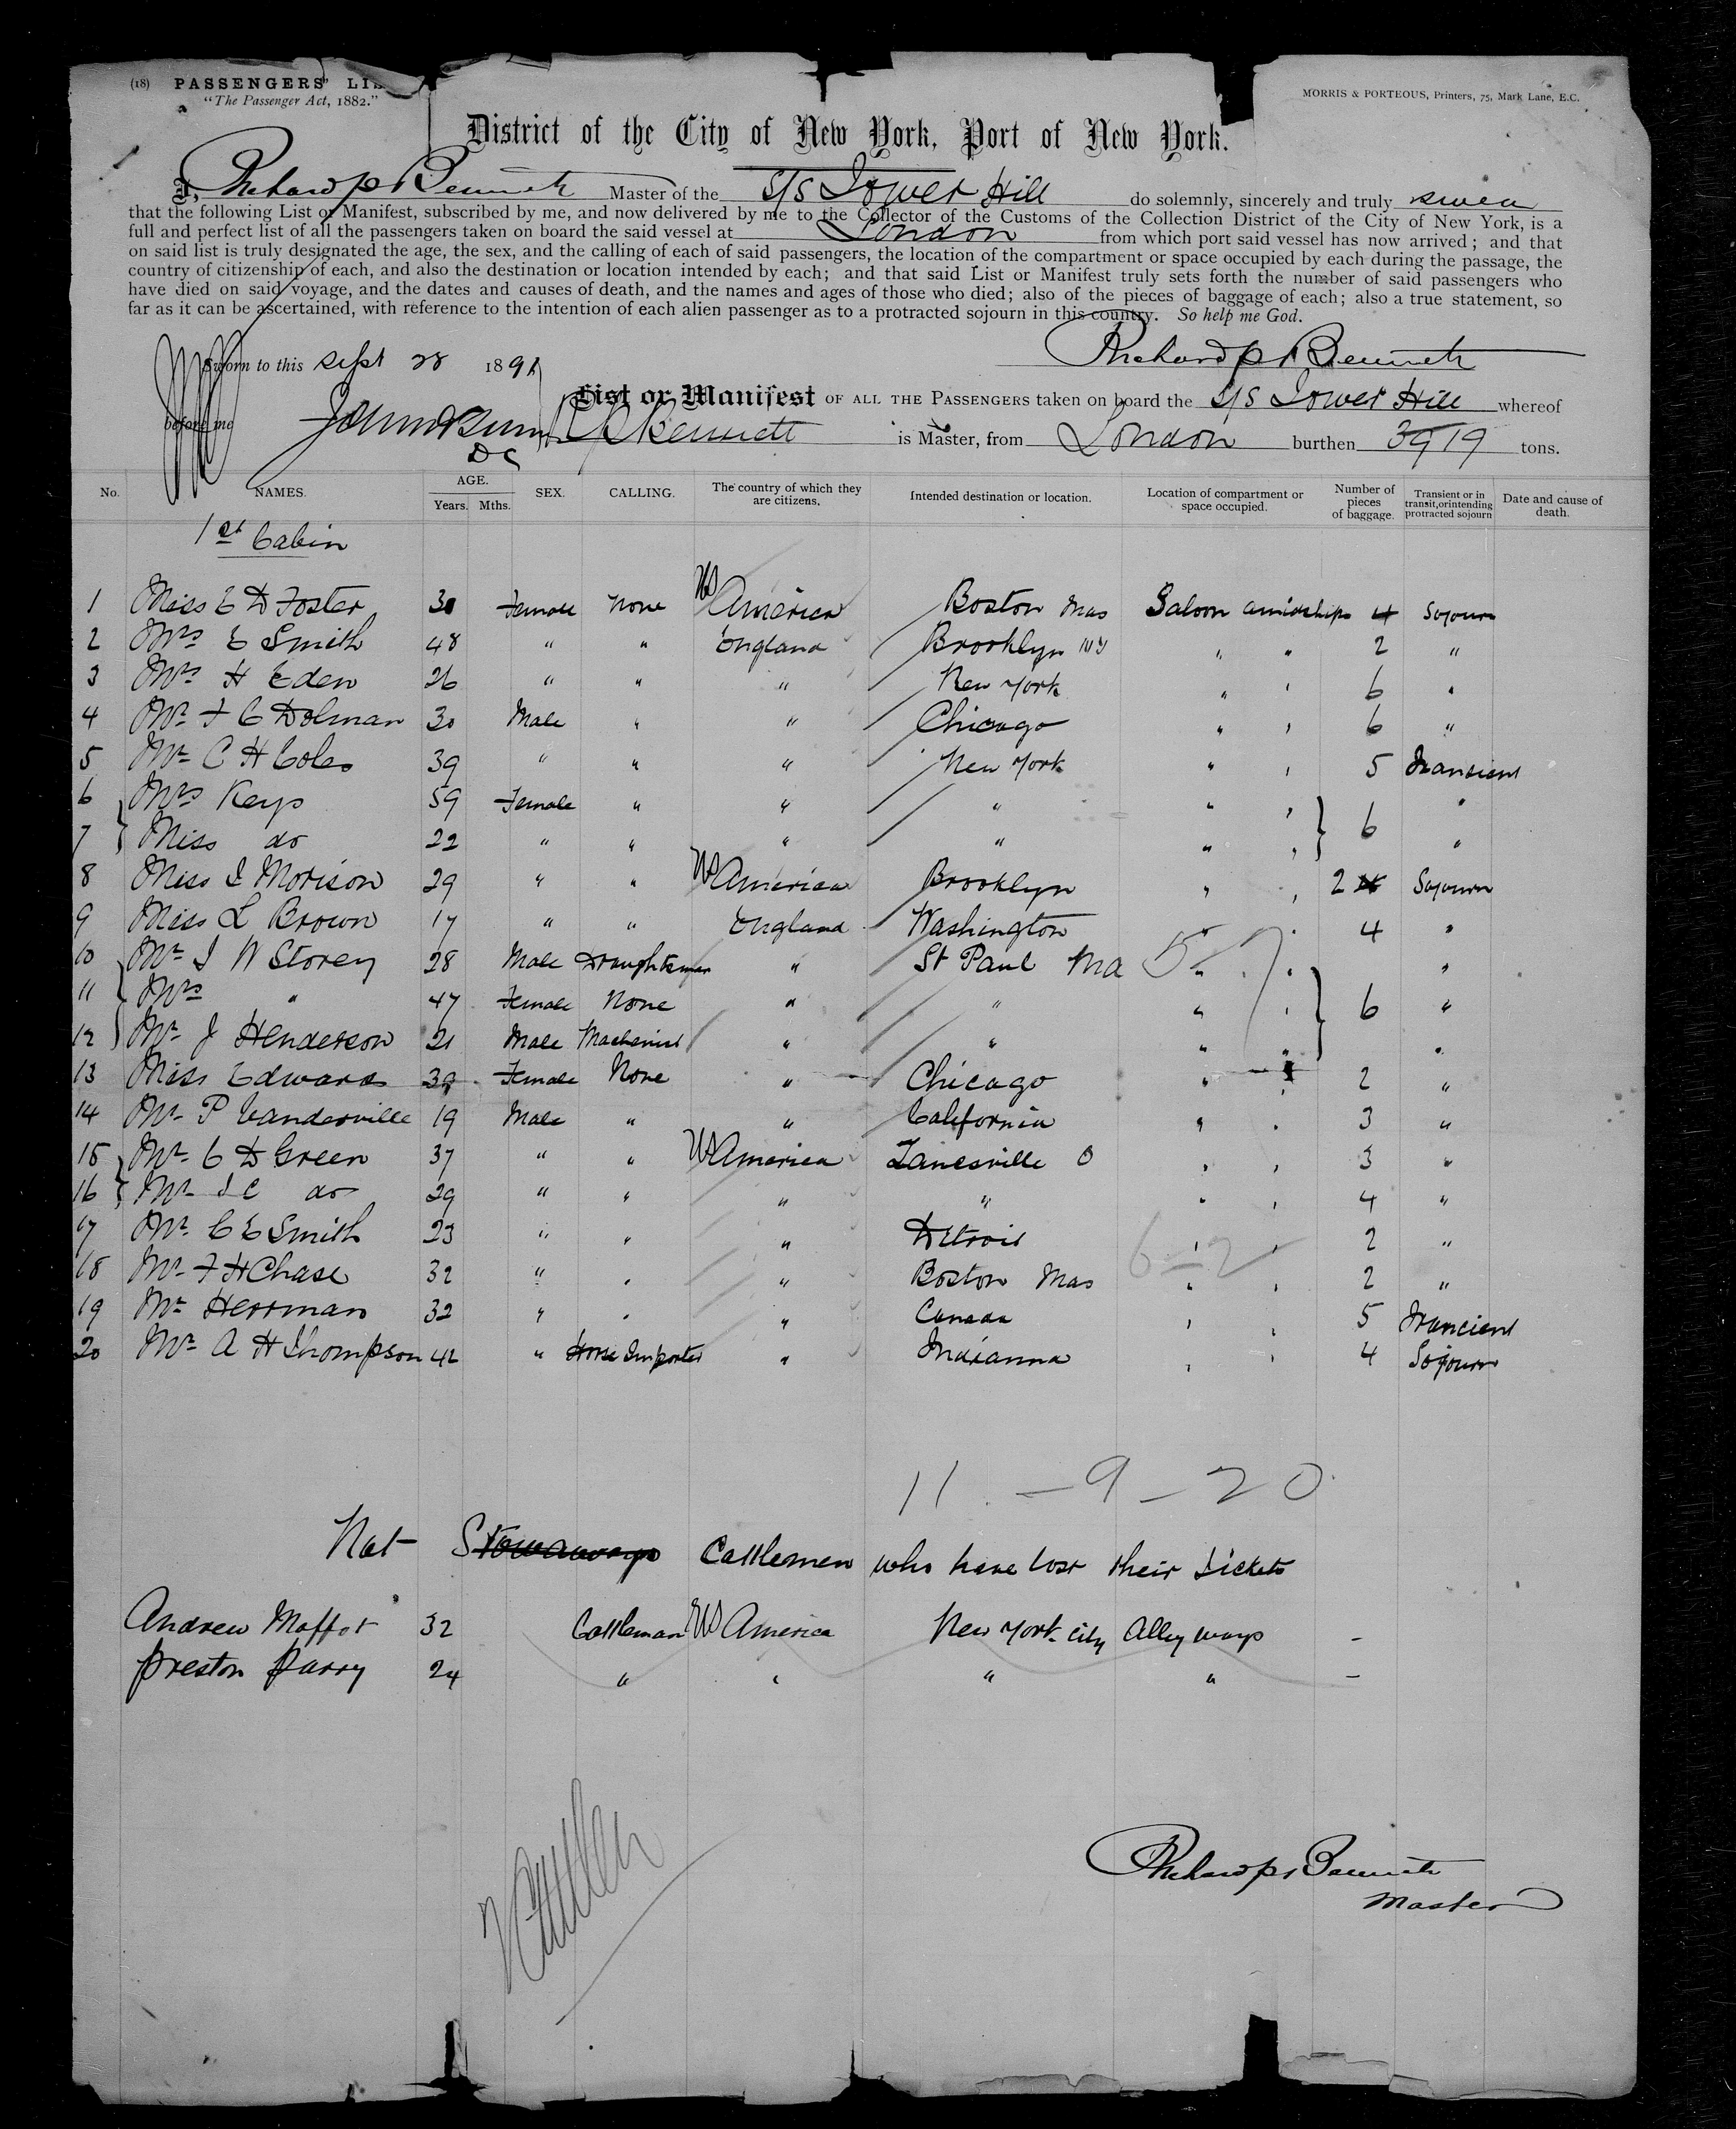 (18) PASSENGERS' LIS
"The Passenger Act, 1882."
MORRIS & PORTEOUS, Printers, 75, Mark Lane, E.C.
District of the City of New York, Port of New York.
I, Richard P Bennett Master of the S/S Tower Hill do solemnly, sincerely and truly swear
that the following List or Manifest, subscribed by me, and now delivered by me to the Collector of the Customs of the Collection District of the City of New York, is a
full and perfect list of all the passengers taken on board the said vessel at London from which port said vessel has now arrived; and that
on said list is truly designated the age, the sex, and the calling of each of said passengers, the location of the compartment or space occupied by each during the passage, the
country of citizenship of each, and also the destination or location intended by each; and that said List or Manifest truly sets forth the number of said passengers who
have died on said voyage, and the dates and causes of death, and the names and ages of those who died; also of the pieces of baggage of each; also a true statement, so
far as it can be ascertained, with reference to the intention of each alien passenger as to a protracted sojourn in this country. So help me God.
Richard P Bennett
Sworn to this Sept 28 1891
List or Manifest OF ALL THE PASSENGERS taken on board the S/S Tower Hill whereof
before me DC Bennett is Master, from London burthen 3919 tons.
No. NAMES. AGE. Years. Mths. SEX. CALLING. The country of which they are citizens. Intended destination or location. Location of compartment or space occupied. Number of pieces of baggage. Transient or in transit, or intending protracted sojourn Date and cause of death.
1st Cabin
1 Miss E D Foster 30 Female None US America Boston Mas Saloon amidships 4 Sojourn
2 Mrs E Smith 48 " " England Brooklyn NY " " 2 "
3 Mrs H Eden 26 " " " New York " " 6 "
4 Mr F C Dolman 30 Male " " Chicago " " 6 "
5 Mr C H Coles 39 " " " New York " " 5 Transient
6 Mrs Keys 59 Female " " " " " 6 "
7 Miss do 22 " " " " " " "
8 Miss I Morison 29 " " US America Brooklyn " " 2 Sojourn
9 Miss L Brown 17 " " England Washington " " 4 "
10 Mr J W Storey 28 Male Draughtsman " St Paul Ma " " "
11 Mrs " 47 Female None " " " " 6 "
12 Mr J Henderson 21 Male Machinist " " " " "
13 Miss Edwards Female None " Chicago " " 2 "
14 Mr P Vanderville 19 Male " " California " " 3 "
15 Mr C D Green 37 " " US America Zanesville O " " 3 "
16 Mr I C do 29 " " " " " " 4 "
17 Mr C E Smith 23 " " " Detroit " " 2 "
18 Mr F H Chase 32 " " " Boston Mas " " 2 "
19 Mr Herrman 32 " " " Canada " " 5 Trancient
20 Mr A H Thompson 42 " Horse Importer " Indianna " " 4 Sojourn
11 - 9 - 20
Not Stowaways Cattlemen who have lost their tickets
Andrew Moffot 32 Cattleman US America New York City Alley ways -
Preston Parry 24 " " " " -
Richard P Bennett
Master